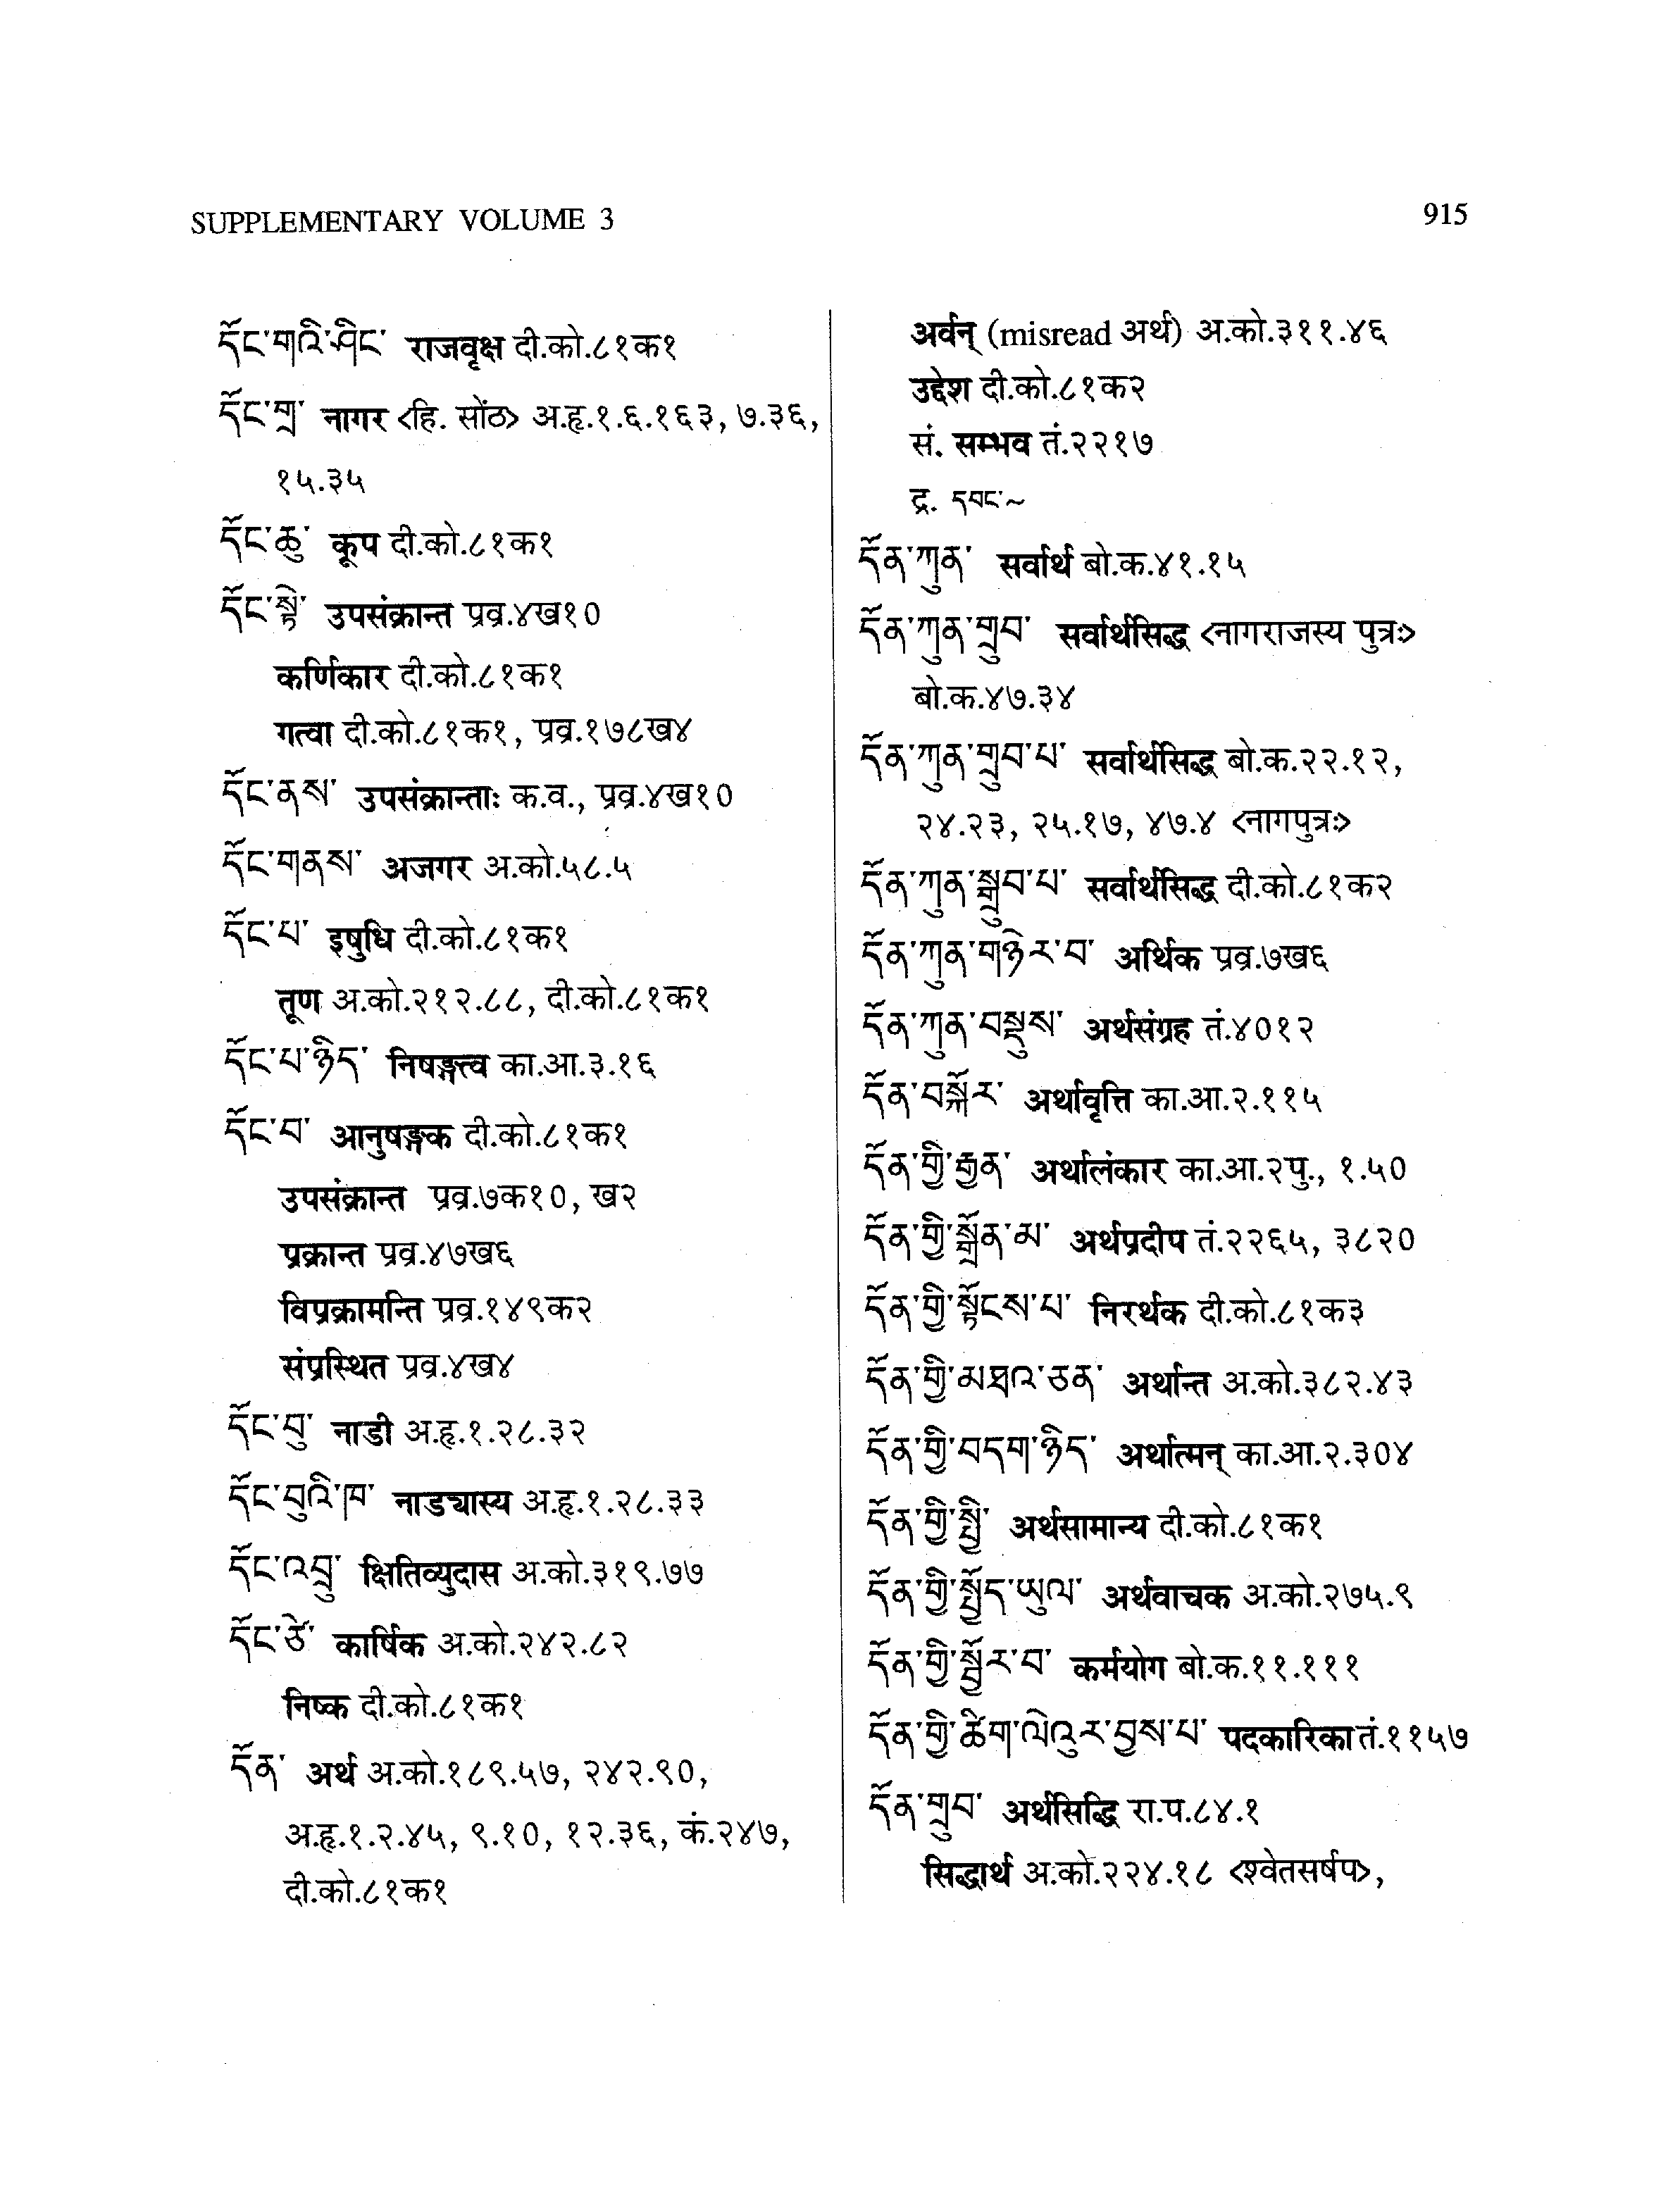 SUPPLEMENTARY VOLUME 3
915
དོང་གའི་ཤིང་ राजवृक्ष दी.को.८१क१
དོང་གྲ་ नागर <हि. सोंठ> अ.हृ.१.६.१६३, ७.३६,
१५.३५
དོང་ཆུ་ कूप दी.को.८१क१
དོང་སྟེ་ उपसंक्रान्त प्रव्र.४ख१०
कर्णिकार दी.को.८१क१
गत्वा दी.को.८१क१, प्रव्र.१७८ख४
དོང་ནས་ उपसंक्रान्ताः क.व., प्रव्र.४ख१०
དོང་གནས་ अजगर अ.को.५८.५
དོང་པ་ इषुधि दी.को.८१क१
तूण अ.को.२१२.८८, दी.को.८१क१
དོང་པ་ཉིད་ निषङ्गत्व का.आ.३.१६
དོང་བ་ आनुषङ्गक दी.को.८१क१
उपसंक्रान्त प्रव्र.७क१०, ख२
प्रक्रान्त प्रव्र.४७ख६
विप्रक्रामन्ति प्रव्र.१४९क२
संप्रस्थित प्रव्र.४ख४
དོང་བུ་ नाडी अ.हृ.१.२८.३२
དོང་བུའི་ཁ་ नाड्यास्य अ.हृ.१.२८.३३
དོང་འབྲུ་ क्षितिव्युदास अ.को.३१९.७७
དོང་ཙེ་ कार्षिक अ.को.२४२.८२
निष्क दी.को.८१क१
དོན་ अर्थ अ.को.१८९.५७, २४२.९०,
अ.हृ.१.२.४५, ९.१०, १२.३६, कं.२४७,
दी.को.८१क१
अर्वन् (misread अर्थ) अ.को.३११.४६
उद्देश दी.को.८१क२
सं. सम्भव तं.२२१७
द्र. དབང་~
དོན་ཀུན་ सर्वार्थ बो.क.४१.१५
དོན་ཀུན་གྲུབ་ सर्वार्थसिद्ध <नागराजस्य पुत्रः>
बो.क.४७.३४
དོན་ཀུན་གྲུབ་པ་ सर्वार्थसिद्ध बो.क.२२.१२,
२४.२३, २५.१७, ४७.४ <नागपुत्रः>
དོན་ཀུན་སྒྲུབ་པ་ सर्वार्थसिद्ध दी.को.८१क२
དོན་ཀུན་གཉེར་བ་ अर्थिक प्रव्र.७ख६
དོན་ཀུན་བསྡུས་ अर्थसंग्रह तं.४०१२
དོན་བསྐོར་ अर्थावृत्ति का.आ.२.११५
དོན་གྱི་རྒྱན་ अर्थालंकार का.आ.२पु., १.५०
དོན་གྱི་སྒྲོན་མ་ अर्थप्रदीप तं.२२६५, ३८२०
དོན་གྱི་སྟོངས་པ་ निरर्थक दी.को.८१क३
དོན་གྱི་མཐའ་ཅན་ अर्थान्त अ.को.३८२.४३
དོན་གྱི་བདག་ཉིད་ अर्थात्मन् का.आ.२.३०४
དོན་གྱི་སྤྱི་ अर्थसामान्य दी.को.८१क१
དོན་གྱི་སྤྱོད་ཡུལ་ अर्थवाचक अ.को.२७५.९
དོན་གྱི་སྦྱོར་བ་ कर्मयोग बो.क.११.१११
དོན་གྱི་ཚིག་ལེའུར་བྱས་པ་ पदकारिका तं.११५७
དོན་གྲུབ་ अर्थसिद्धि रा.प.८४.१
सिद्धार्थ अ.को.२२४.१८ <श्वेतसर्षप>,